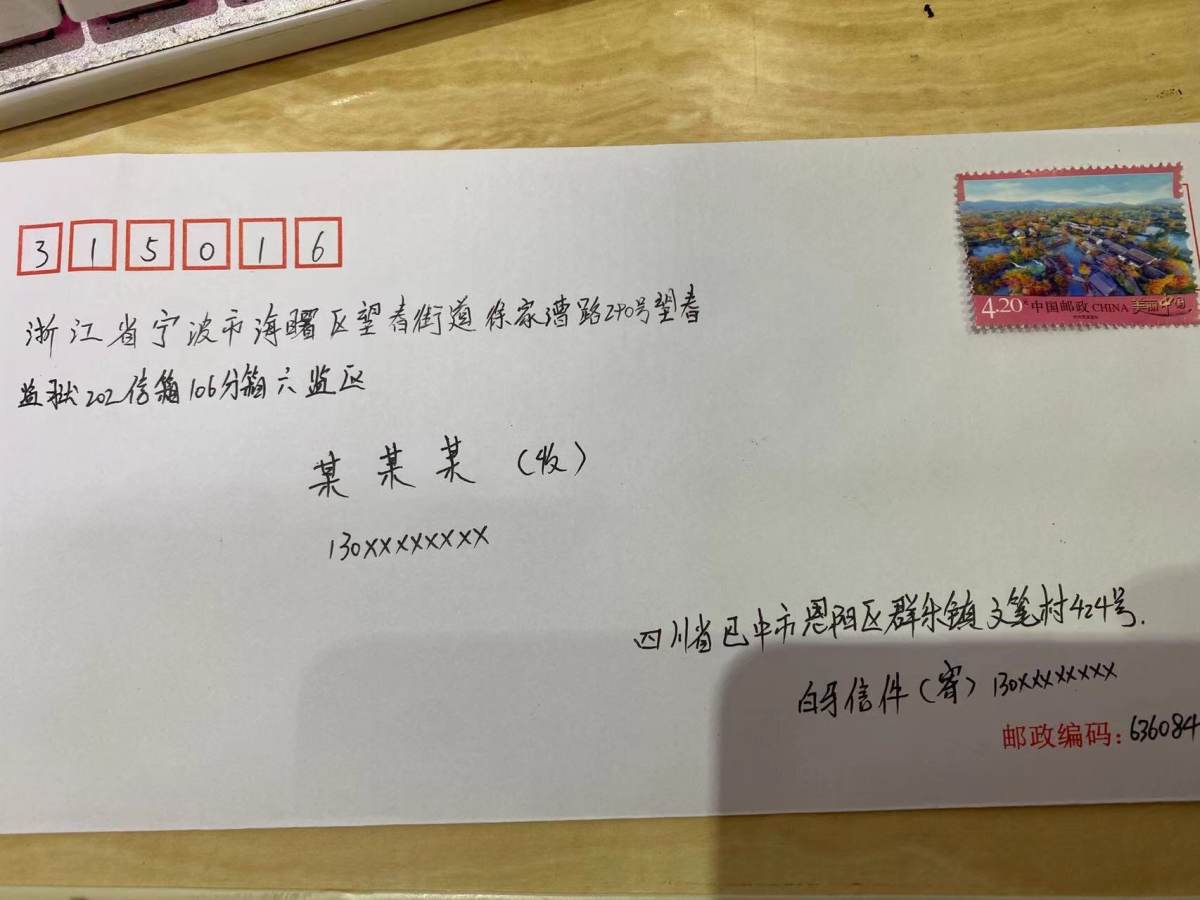 315016
浙江省宁波市海曙区望春街道徐家漕路240号望春
监狱202信箱106分箱六监区
某某某（收）
130xxxxxxxx
4.20元 中国邮政 CHINA 美丽中国
四川省巴中市恩阳区群乐镇文笔村424号.
白牙信件（寄）130xxxxxxxx
邮政编码：636084